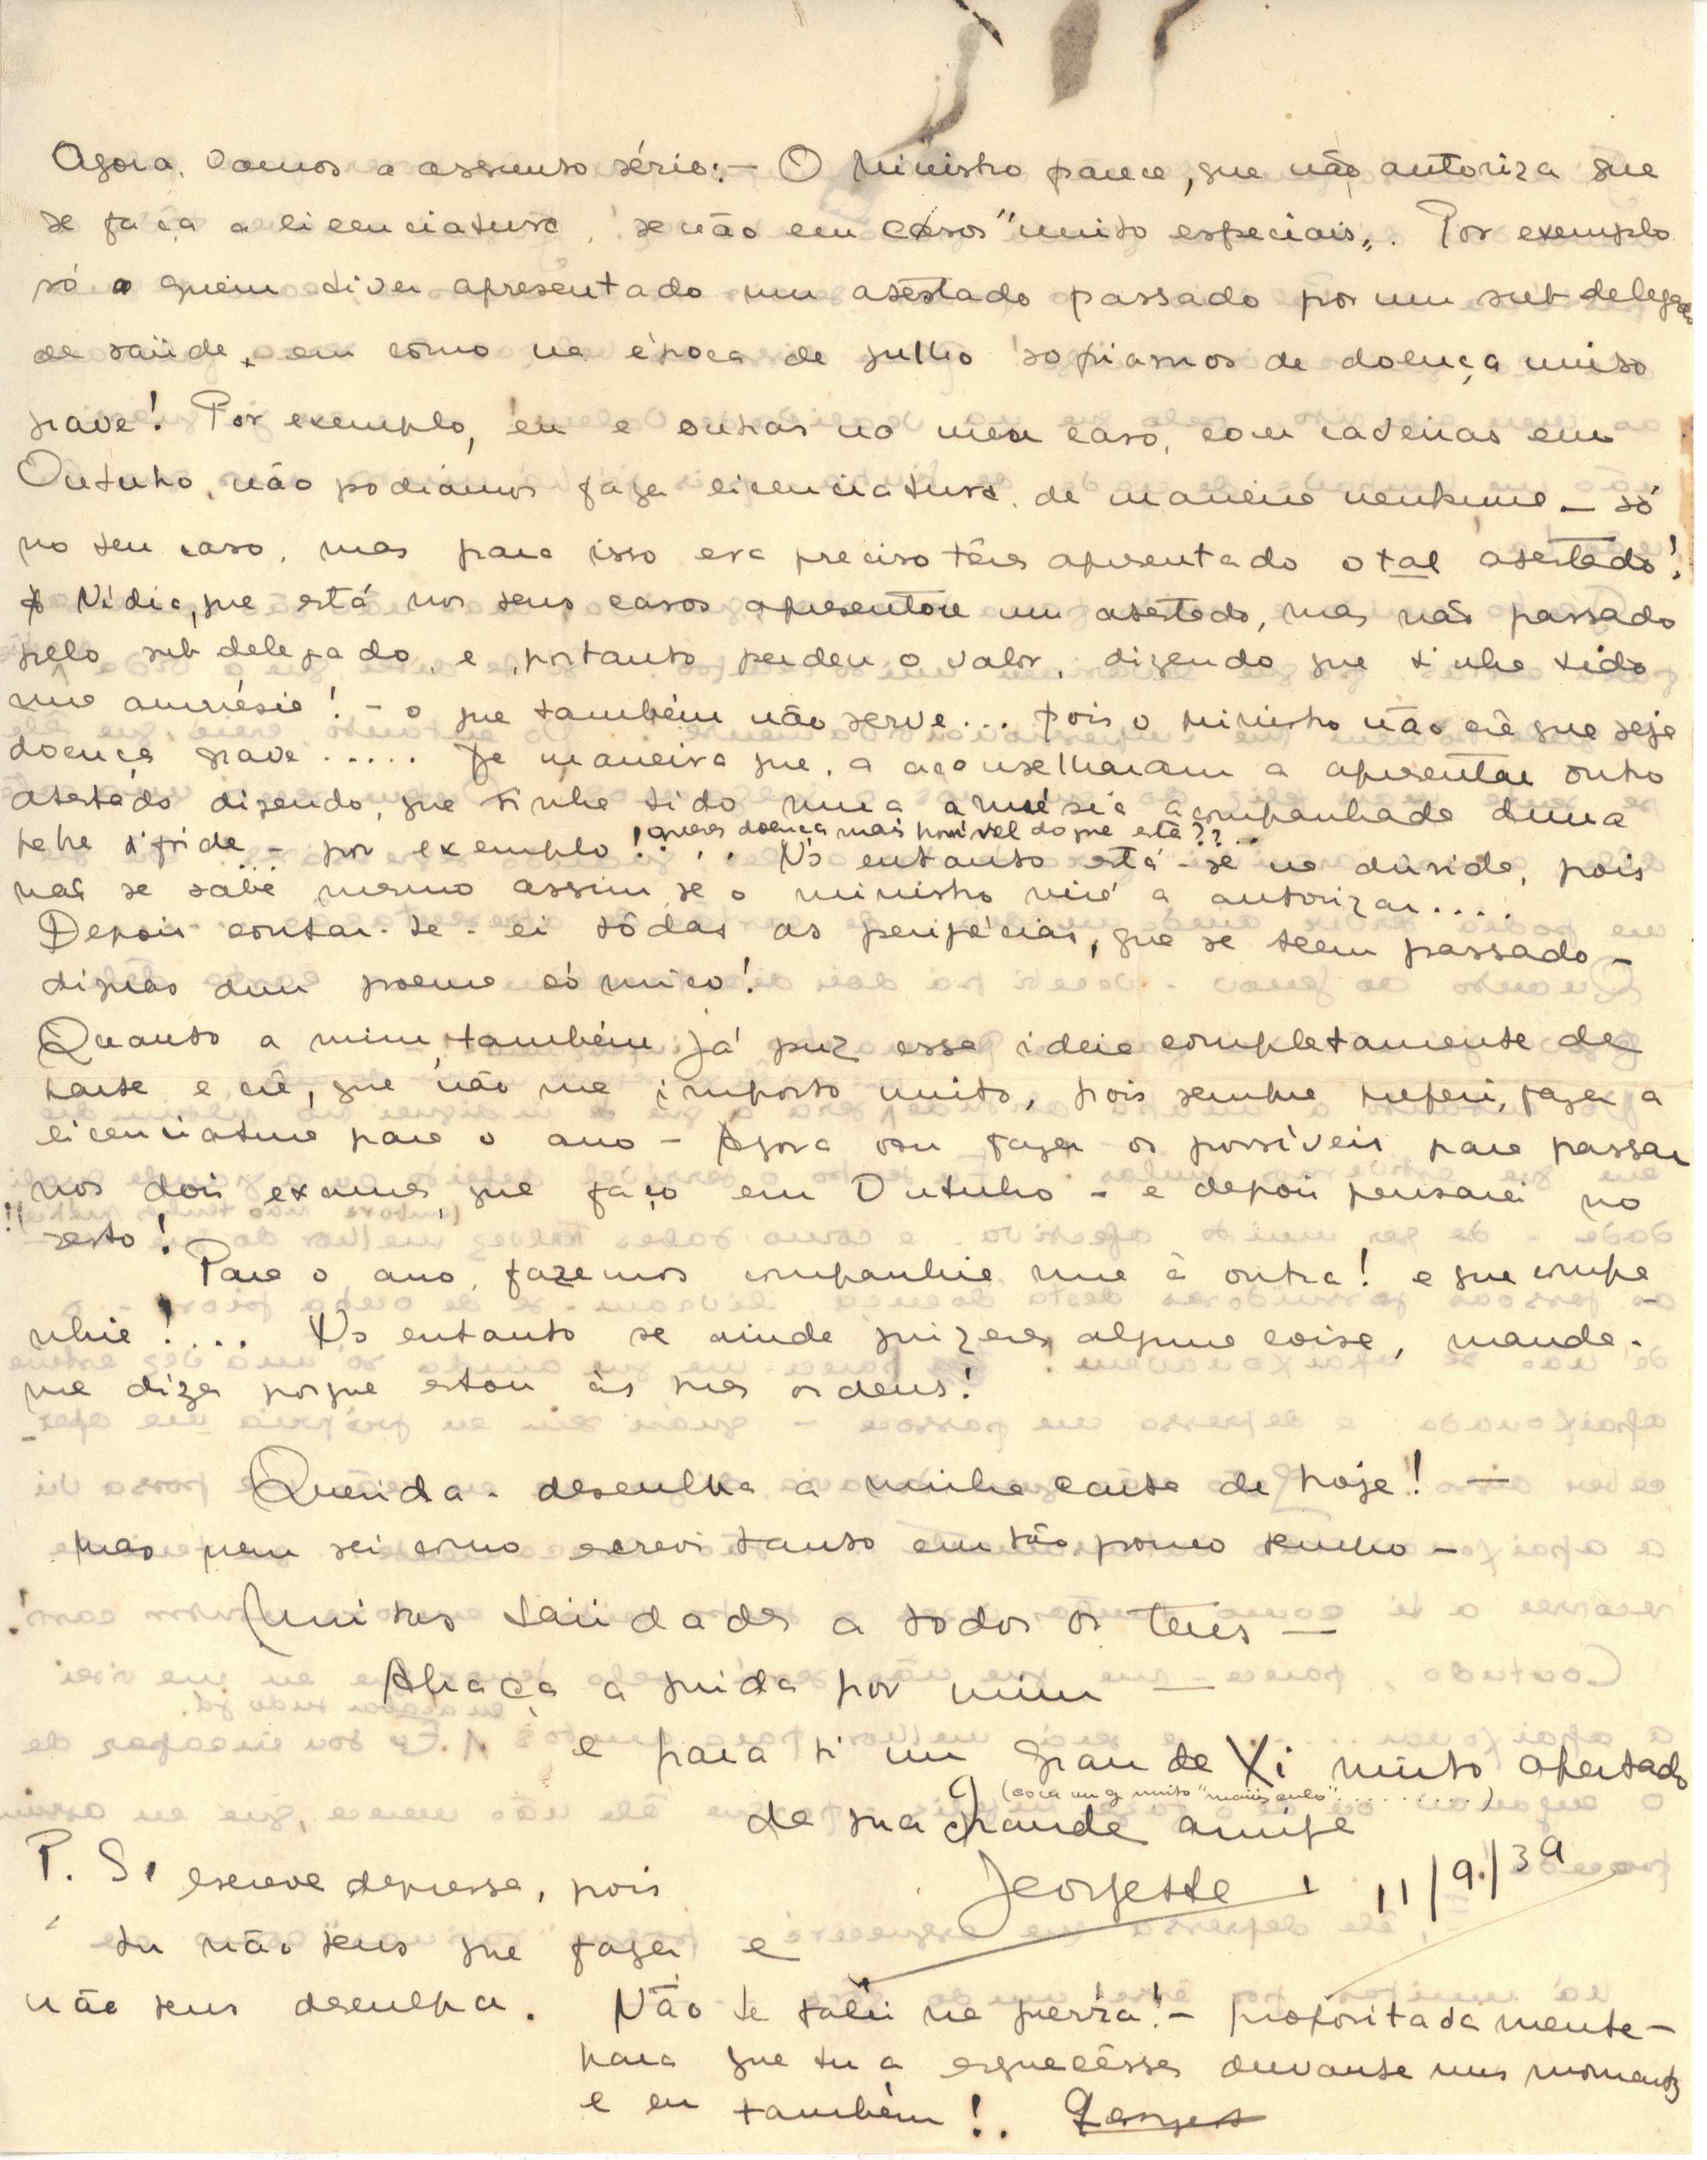 Agora, vamos a assunto sério: — O Ministro parece, que não autoriza que
se faça a licenciatura, senão em casos "muito especiais". Por exemplo
só a quem tiver apresentado um atestado passado por um sub-delegado
de saúde, em como na época de julho sofriamos de doença muito
grave! Por exemplo, eu e outras no meu caso, com cadeiras em
Outubro, não podiamos fazer licenciatura de maneira nenhuma — só
no teu caso, mas para isso era preciso têres apresentado o tal atestado!
A Nidia, que está nos teus casos apresentou um atestado, mas não passado
pelo sub delegado, e portanto perdeu o valor, dizendo que tinha tido
uma amnésia! — o que também não serve... pois o ministro não crê que seja
doença grave..... De maneira que, a aconselharam a apresentar outro
atestado dizendo, que tinha tido uma amnésia acompanhada duma
febre tifoide — por exemplo!... queres doença mais horrivel do que esta??...
No entanto está-se na dúvida, pois
não se sabe mesmo assim, se o ministro virá a autorizar....
Depois contar-te-ei tôdas as peripécias, que se teem passado —
dignas dum poema cómico!
Quanto a mim, também já puz essa ideia completamente de
parte e crê, que não me importo muito, pois sempre preferi, fazer a
licenciatura para o ano — Agora vou fazer os possíveis para passar
nos dois exames, que faço em Outubro — e depois pensarei no
resto!!!
Para o ano, fazemos companhia uma à outra! e que compa-
nhia!... No entanto se ainda quizeres alguma coisa, manda-
me dizer porque estou às tuas ordens!
Querida — desculpa a minha carta de hoje! —
mas nem sei como escrevi tanto em tão pouco tempo —
Muitas saüdades a todos os teus —
Abraça a Guida por mim —
e para ti um grande Xi muito apertado
(com um g muito "maiúsculo"..........)
da tua Grande amiga
Georgette 11/9/39
P. S. escreve depressa, pois
tu não tens que fazer e
não tens desculpa. Não te falei na guerra! — propositadamente —
para que tu a esquecêsses durante uns momentos
e eu também!. Georget